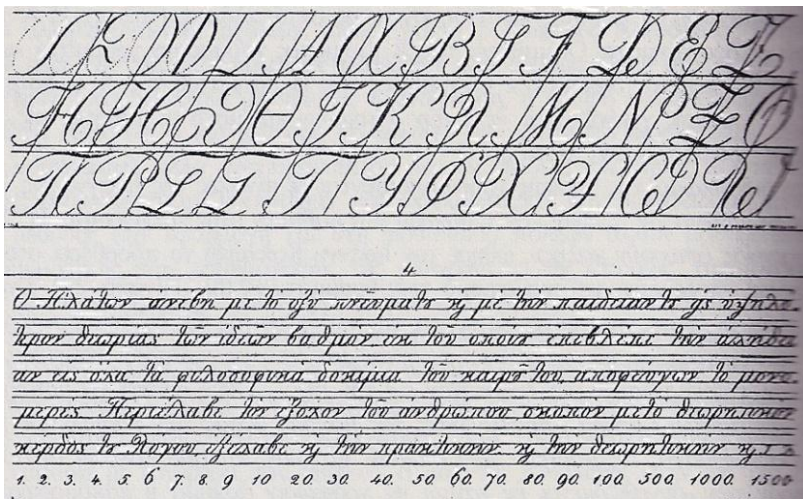 Α Β Γ Γ Δ Ε Ζ
Η Η Θ Θ Ι Κ Λ Μ Ν Ξ Ο
Π Ρ Σ Σ Τ Υ Φ Χ Ψ Ω Ω
4
Ο Πλάτων ανεβη με το οξυ πνεῦμα τȣ ϗ με την παιδείαν τȣ εἰς ὑψηλο
τερον θεωρίας τῶν ἰδεῶν βαθμὸν ἐκ τοῦ ὁποίου ἐπεβλεπε την ἀλήθει
αν εἰς ὅλα τα φιλοσοφικα δοκίμια τοῦ καιρȣ͂ του, αποφεύγων το μονο
μερές. Περιέλαβε τον ἐξοχον τοῦ ἀνθρώπου σκοπον με το θεωρητικον
κερδος τȣ Λογου εξέλαβε ϗ την πρακτικην ϗ την θεωρητικην ϗ
1. 2. 3. 4. 5. 6 7. 8. 9 10 20. 30. 40. 50. 60. 70. 80. 90. 100. 500. 1000. 1500